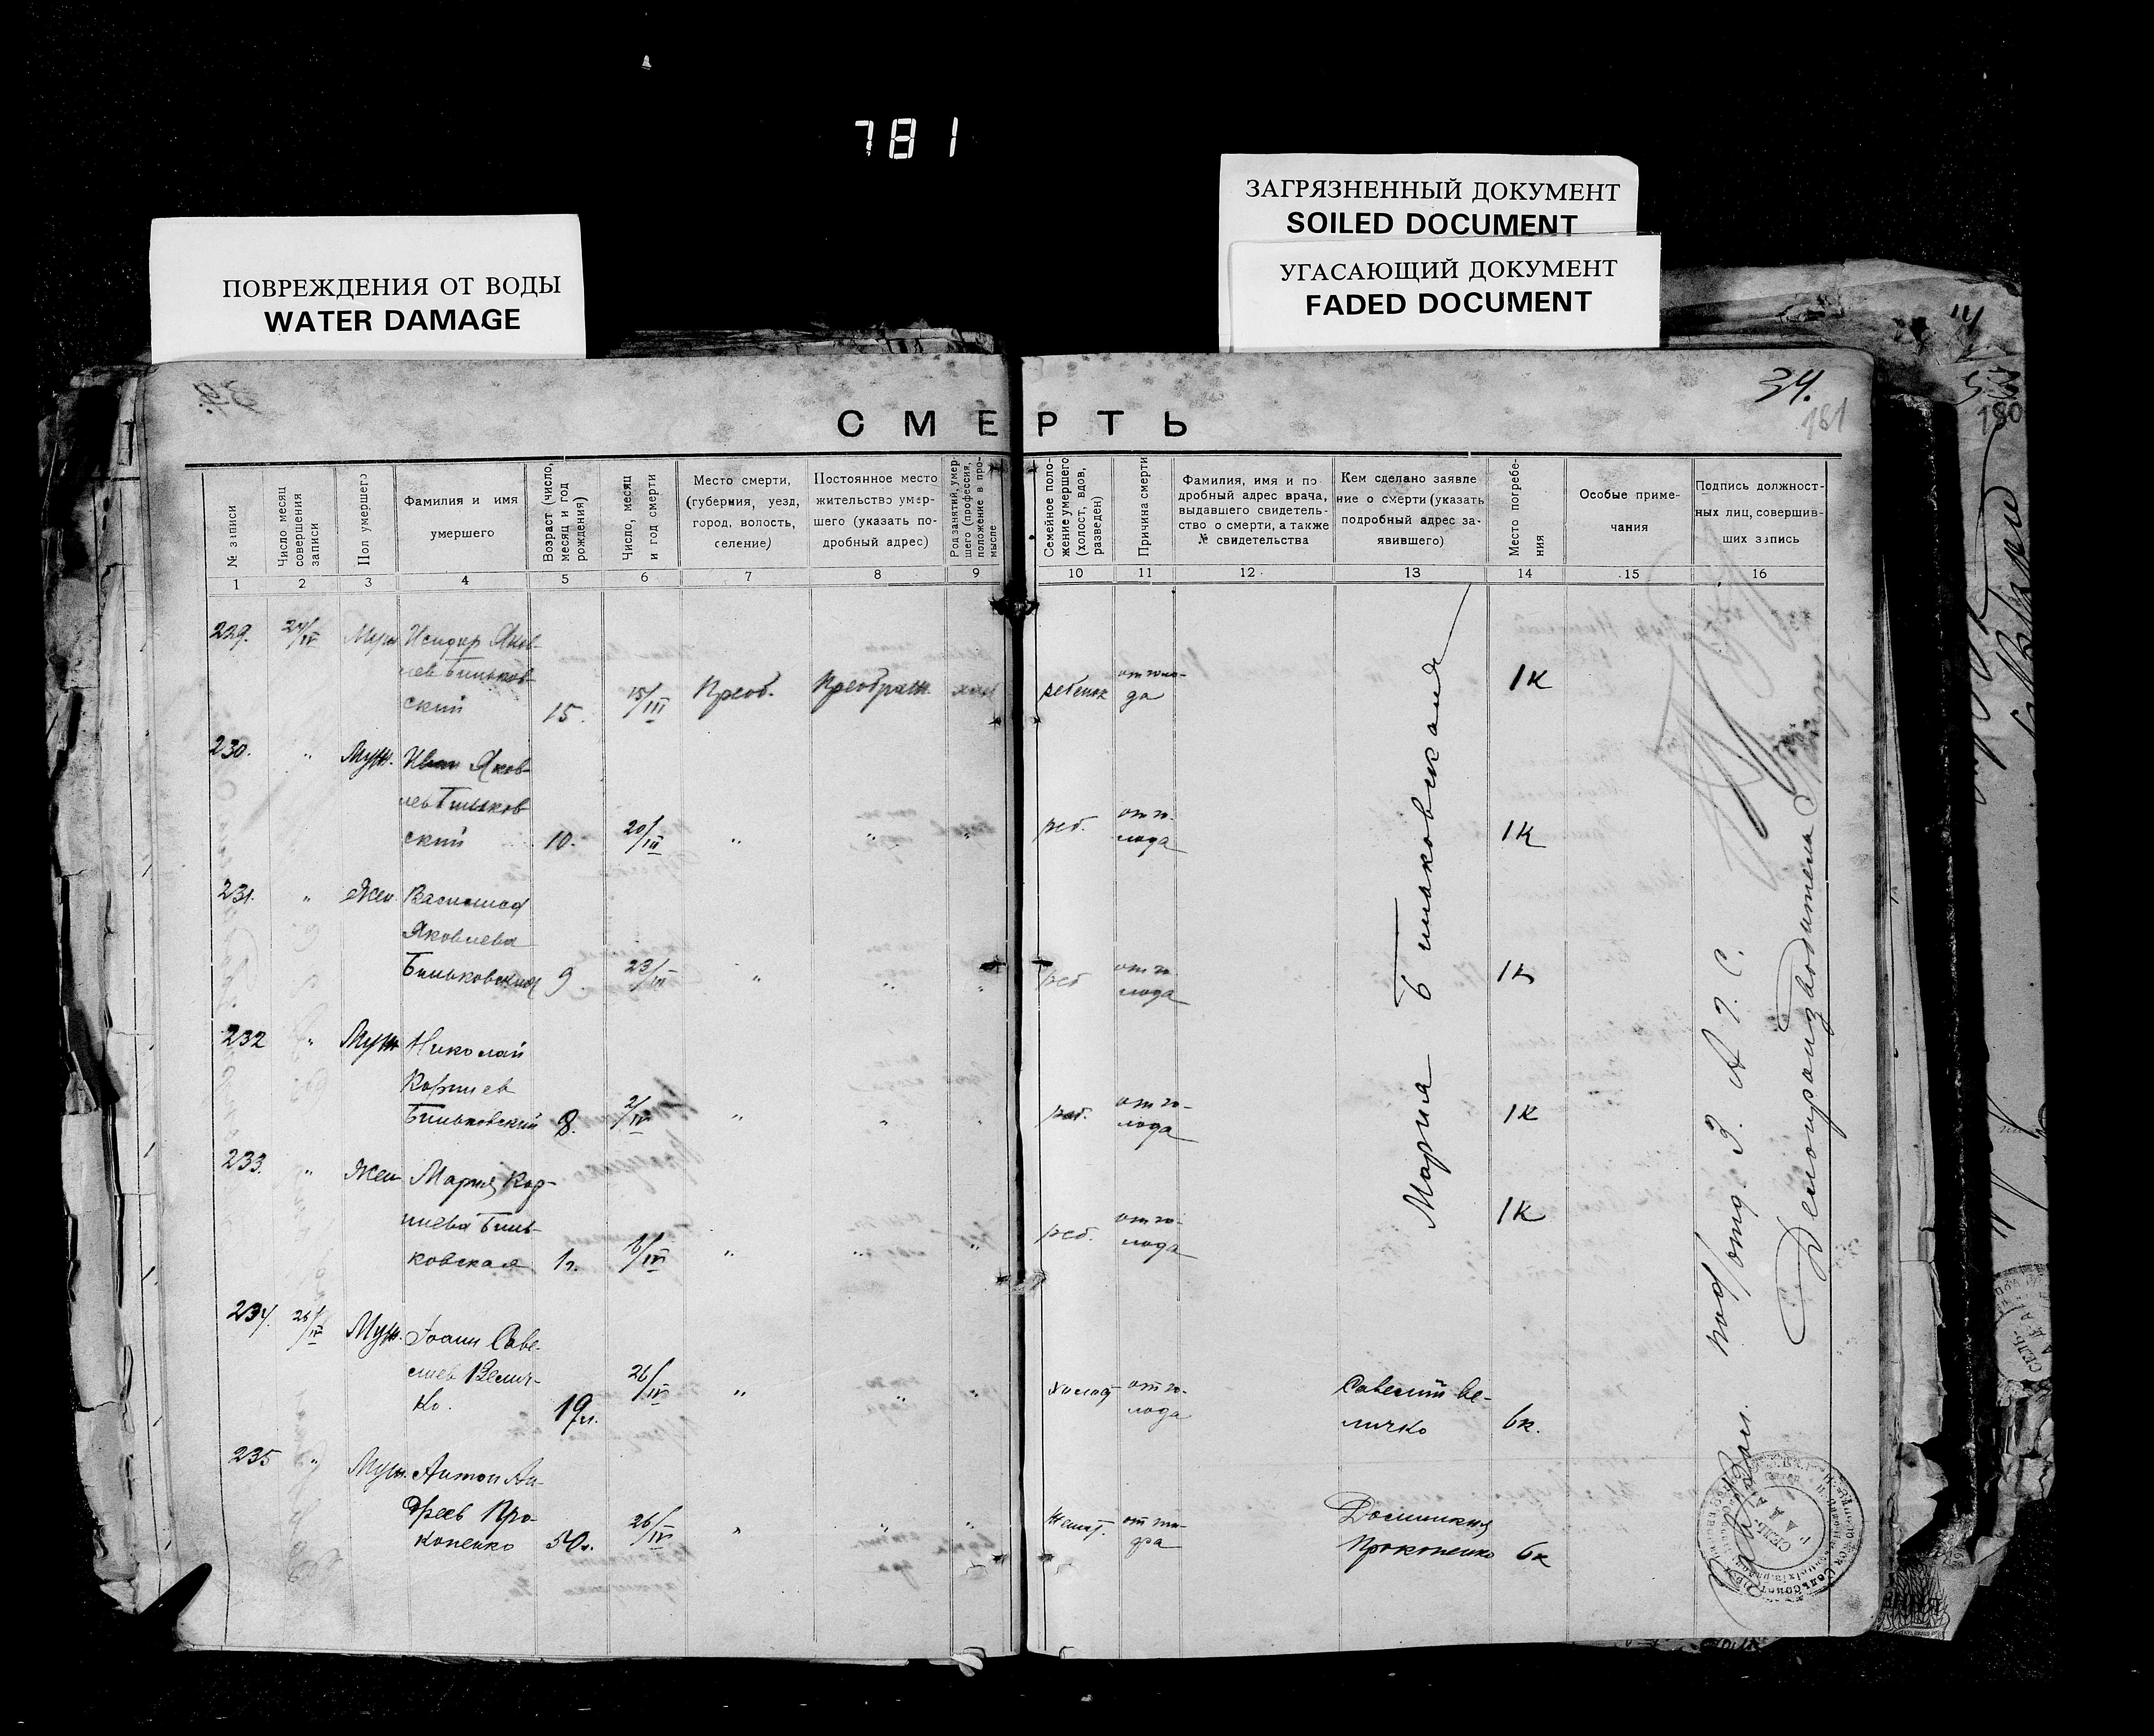 781
ПОВРЕЖДЕНИЯ ОТ ВОДЫ
WATER DAMAGE
ЗАГРЯЗНЕННЫЙ ДОКУМЕНТ
SOILED DOCUMENT
УГАСАЮЩИЙ ДОКУМЕНТ
FADED DOCUMENT
34.
181
180
СМЕРТЬ
№ записи
Число, месяц
совершения
записи
Пол умершего
Фамилия и имя
умершего
Возраст (число,
месяц и год
рождения)
Число, месяц
и год смерти
Место смерти,
(губерния, уезд,
город, волость,
селение)
Постоянное место
жительство умер-
шего (указать по-
дробный адрес)
Род занятий, умер-
шего (профессия,
положение в про-
мысле
Семейное поло-
жение умершего
(холост, вдов,
разведен)
Причина смерти
Фамилия, имя и по
дробный адрес врача,
выдавшего свидетель-
ство о смерти, а также
№ свидетельства
Кем сделано заявле
ние о смерти (указать
подробный адрес за-
явившего)
Место погребе-
ния
Особые приме-
чания
Подпись должност-
ных лиц, совершив-
ших запись
1 2 3 4 5 6 7 8 9 10 11 12 13 14 15 16
229. 24/IV Муж Исидор Яков-
лев Бильков-
ский 15. 15/III Преоб. Преображ. ребенок от голо-
да 1к
230. " Муж. Иван Яков-
лев Бильков
ский 10. 20/III " " " реб. от го-
лода 1к
231. " Жен
Яковлева
Бильковская 9 23/III " " " реб от го-
лода 1к
232 " Муж Николай
Корниев
Бильковский 8. 2/IV " " реб. от го-
лода 1к
233. " Жен Мария Кор-
ниева Биль-
ковская 1г. 6/IV " " " реб. от го-
лода 1к
Мария Бильковская
234. 26/IV Муж. Иоанн Саве-
лиев Велич-
ко. 19л. 26/IV " " " холост от го-
лода Савелий Ве-
личко 6к.
235 " Муж. Антон Ан-
дреев Про-
копенко 50л. 26/IV " " " женат. от ти-
фа Домникия
Прокопенко 6к
Зав. под/отд. З. А. Г. С.
Делопроизводителя